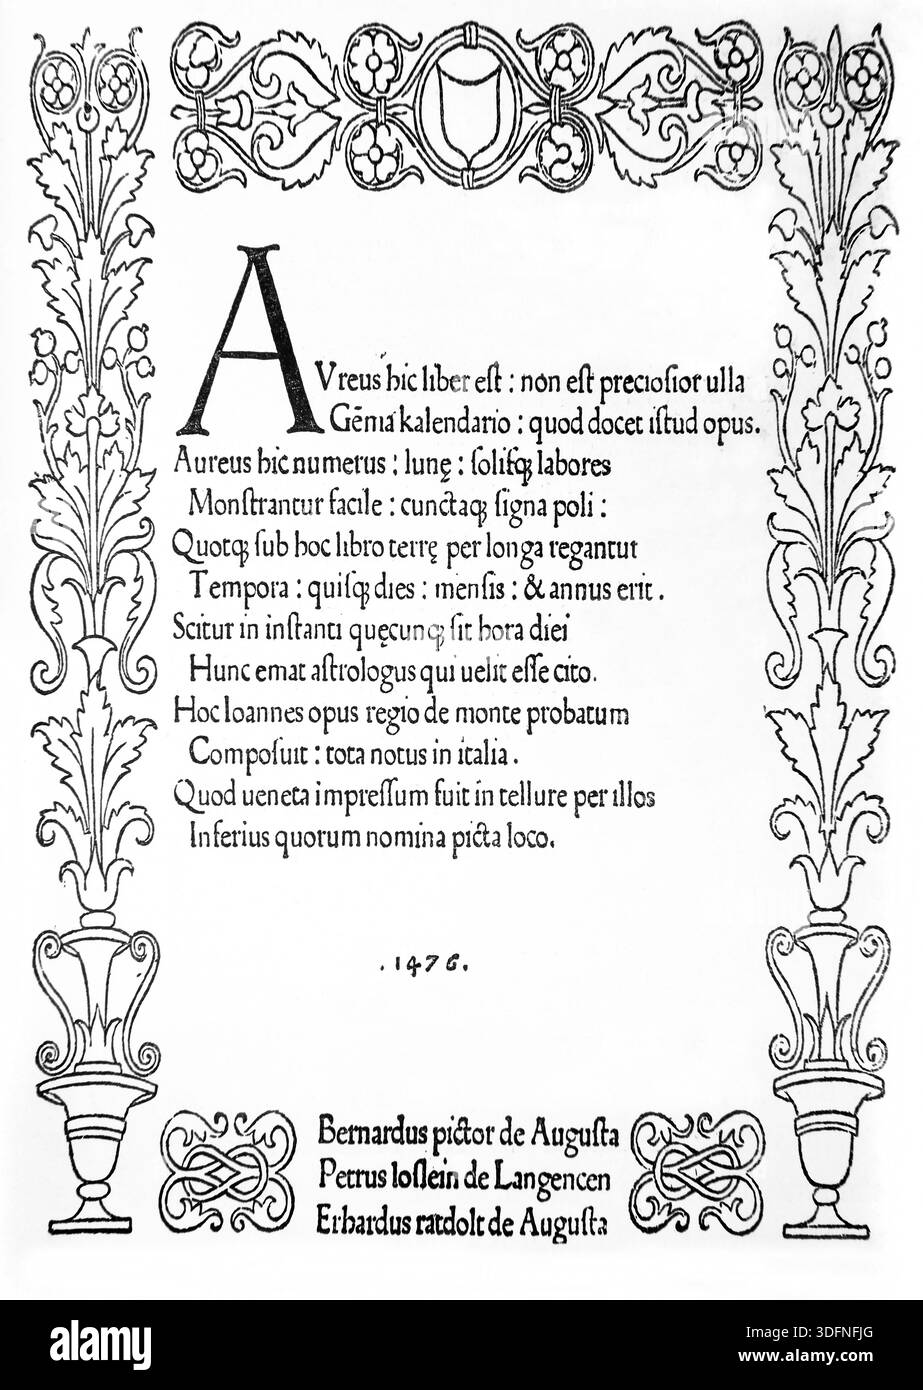 AVreus hic liber est : non est preciosior ulla
Gēma kalendario : quod docet istud opus.
Aureus hic numerus : lunę : solisqꝫ labores
Monstrantur facile : cunctaqꝫ signa poli :
Quotqꝫ sub hoc libro terrę per longa regantur
Tempora : quisqꝫ dies : mensis : & annus erit .
Scitur in instanti quęcunqꝫ sit hora diei
Hunc emat astrologus qui uelit esse cito.
Hoc Ioannes opus regio de monte probatum
Composuit : tota notus in italia .
Quod ueneta impressum fuit in tellure per illos
Inferius quorum nomina picta loco.
.1476.
Bernardus pictor de Augusta
Petrus loslein de Langencen
Erhardus ratdolt de Augusta
alamy
Image ID: 3DFNFJG
www.alamy.com